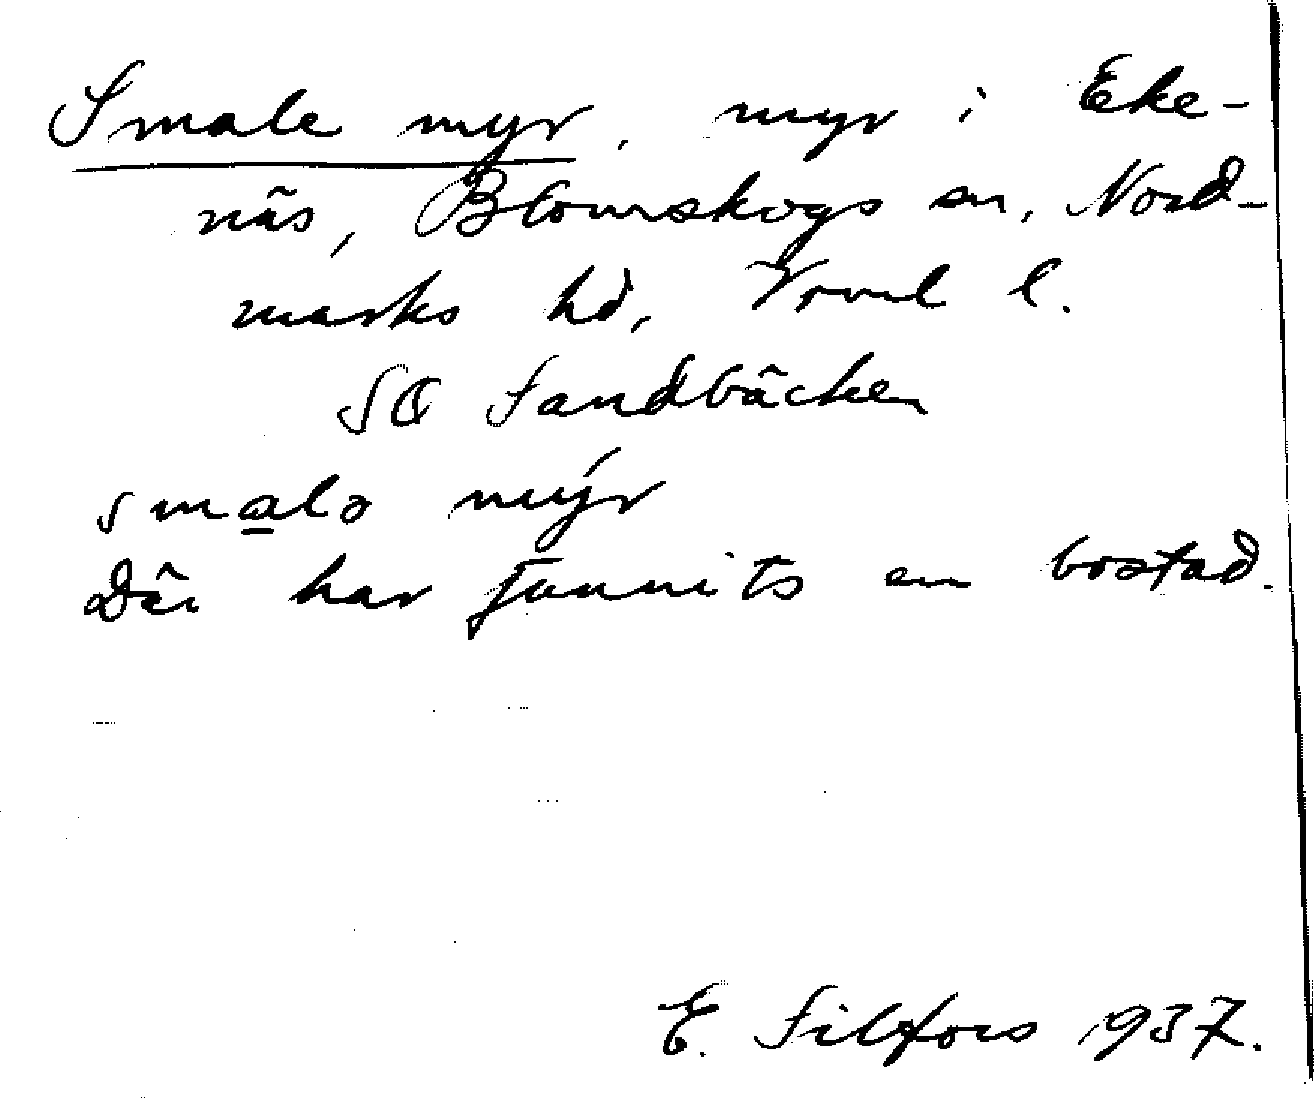 Smale myr, myr i Eke-
näs, Blomskogs sn, Nord-
marks hd, Vrml l.
SO Sandbäcken
smalə mýr
Där har funnits en bostad.
E. Filfors 1937.